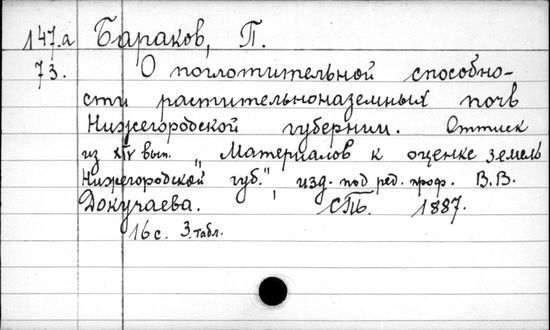 147.а Бараков, П.
73. О поглотительной способно-
сти растительноназемных почв
Нижегородской губернии. Оттиск
из XIV вып. „Материалов к оценке земель
Нижегородской губ.", изд. под ред. проф. В.В.
Докучаева. СПб. 1887.
16 с. 3 табл.